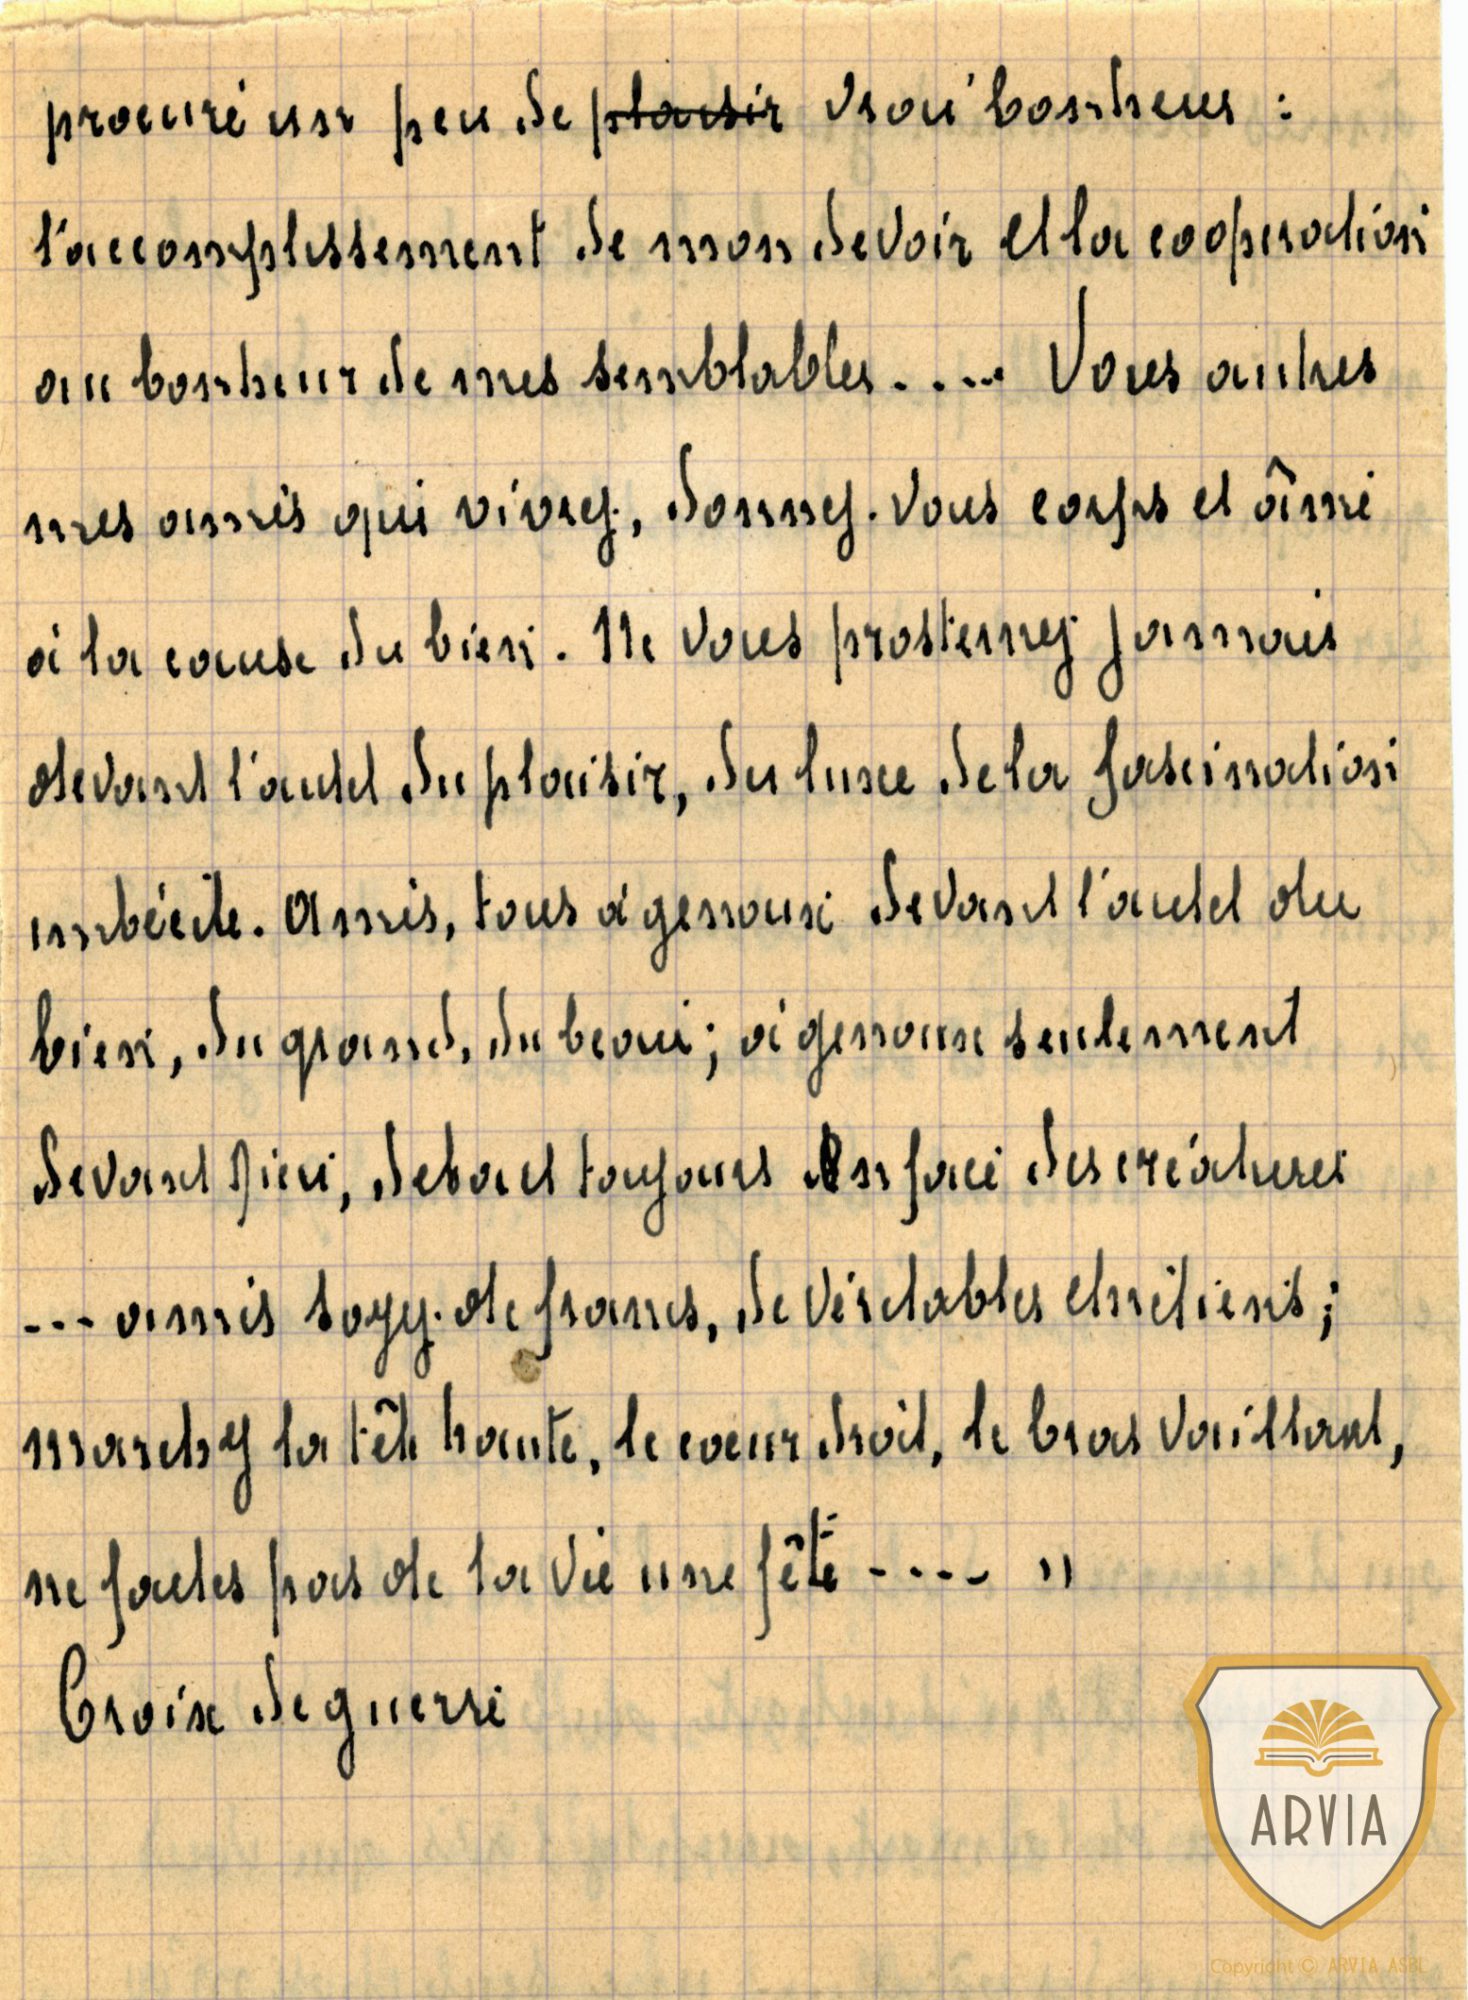 procuré un peu de plaisir vrai bonheur :
l'accomplissement de mon devoir et la cooperation
au bonheur de mes semblables..... Vous autres
mes amis qui vivez, donnez-vous corps et âme
à la cause du bien. Ne vous prosternez jamais
devant l'autel du plaisir, du luxe de la fascination
imbécile. Amis, tous à genoux devant l'autel du
bien, du grand, du beau; à genoux seulement
devant Dieu, debout toujours en face des créatures
--- amis soyez de francs, de véritables chrétiens;
marchez la tête haute, le coeur droit, le bras vaillant,
ne faites pas de la vie une fête ---- "
Croix de guerre
ARVIA
Copyright © ARVIA ASBL